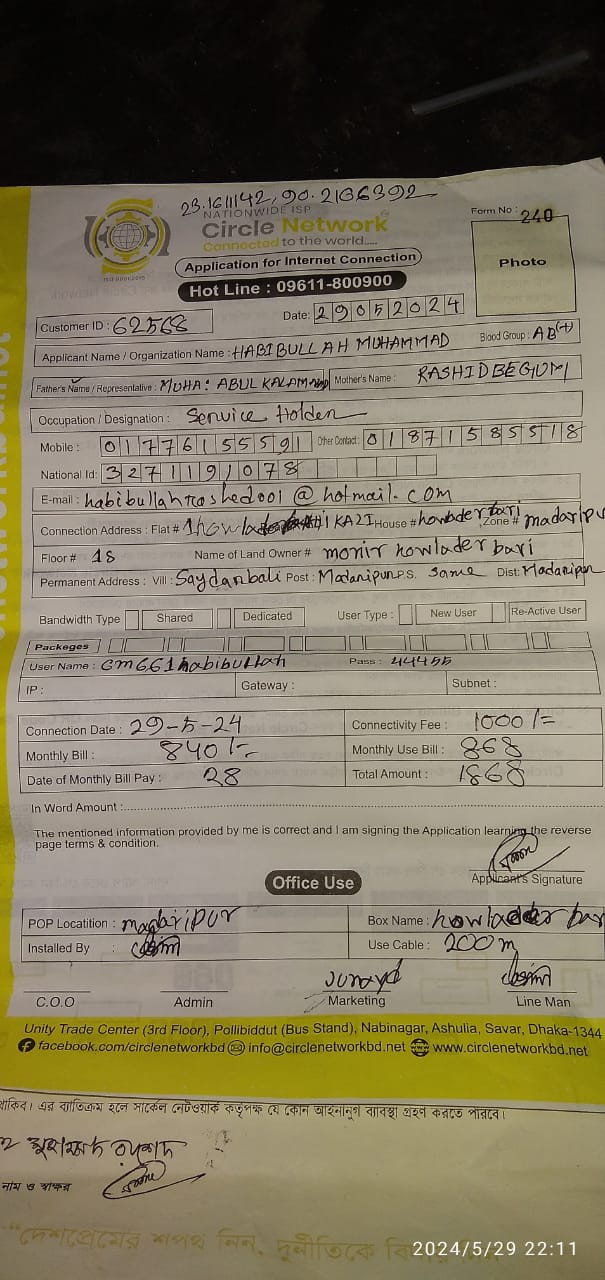 23.161142, 90.2136392
NATIONWIDE ISP
Circle Network
Connected to the world....
ISO 9001:2015
Application for Internet Connection
Hot Line : 09611-800900
Form No : 240
Photo
Customer ID : 62568
Date: 29052024
Applicant Name / Organization Name : HABIBULLAH MUHAMMAD Blood Group : AB(+)
Father's Name / Representative : MUHA: ABUL KALAM Mother's Name : RASHIDBEGUM
Occupation / Designation : Service Holder
Mobile : 01776155591 Other Contact : 01871585518
National Id: 3271191078
E-mail : habibullahrashed001@hotmail.com
Connection Address : Flat # KAZI House # howlader bari Zone # madaripu
Floor # 1s Name of Land Owner # monir howlader bari
Permanent Address : Vill : Saydarbali Post : Madaripur P.S. Same Dist: Madaripur
Bandwidth Type Shared Dedicated User Type : New User Re-Active User
Packeges
User Name : cm661habibullah Pass : 44455
IP : Gateway : Subnet :
Connection Date : 29-5-24 Connectivity Fee : 1000/=
Monthly Bill : 840/= Monthly Use Bill : 868
Date of Monthly Bill Pay : 28 Total Amount : 1868
In Word Amount :
The mentioned information provided by me is correct and I am signing the Application learning the reverse
page terms & condition.
Applicant's Signature
Office Use
POP Locatition : madaripur Box Name : howlader bar
Installed By : Use Cable : 200m
C.O.O Admin Marketing Line Man
Unity Trade Center (3rd Floor), Pollibiddut (Bus Stand), Nabinagar, Ashulia, Savar, Dhaka-1344
facebook.com/circlenetworkbd info@circlenetworkbd.net www.circlenetworkbd.net
থাকিব। এর ব্যতিক্রম হলে সার্কেল নেটওয়ার্ক কর্তৃপক্ষ যে কোন আইনানুগ ব্যবস্থা গ্রহণ করতে পারবে।
মুহাম্মদ রাশেদ
নাম ও স্বাক্ষর
"দেশপ্রেমের শপথ নিন, দুর্নীতিকে বিদায় দিন"
2024/5/29 22:11